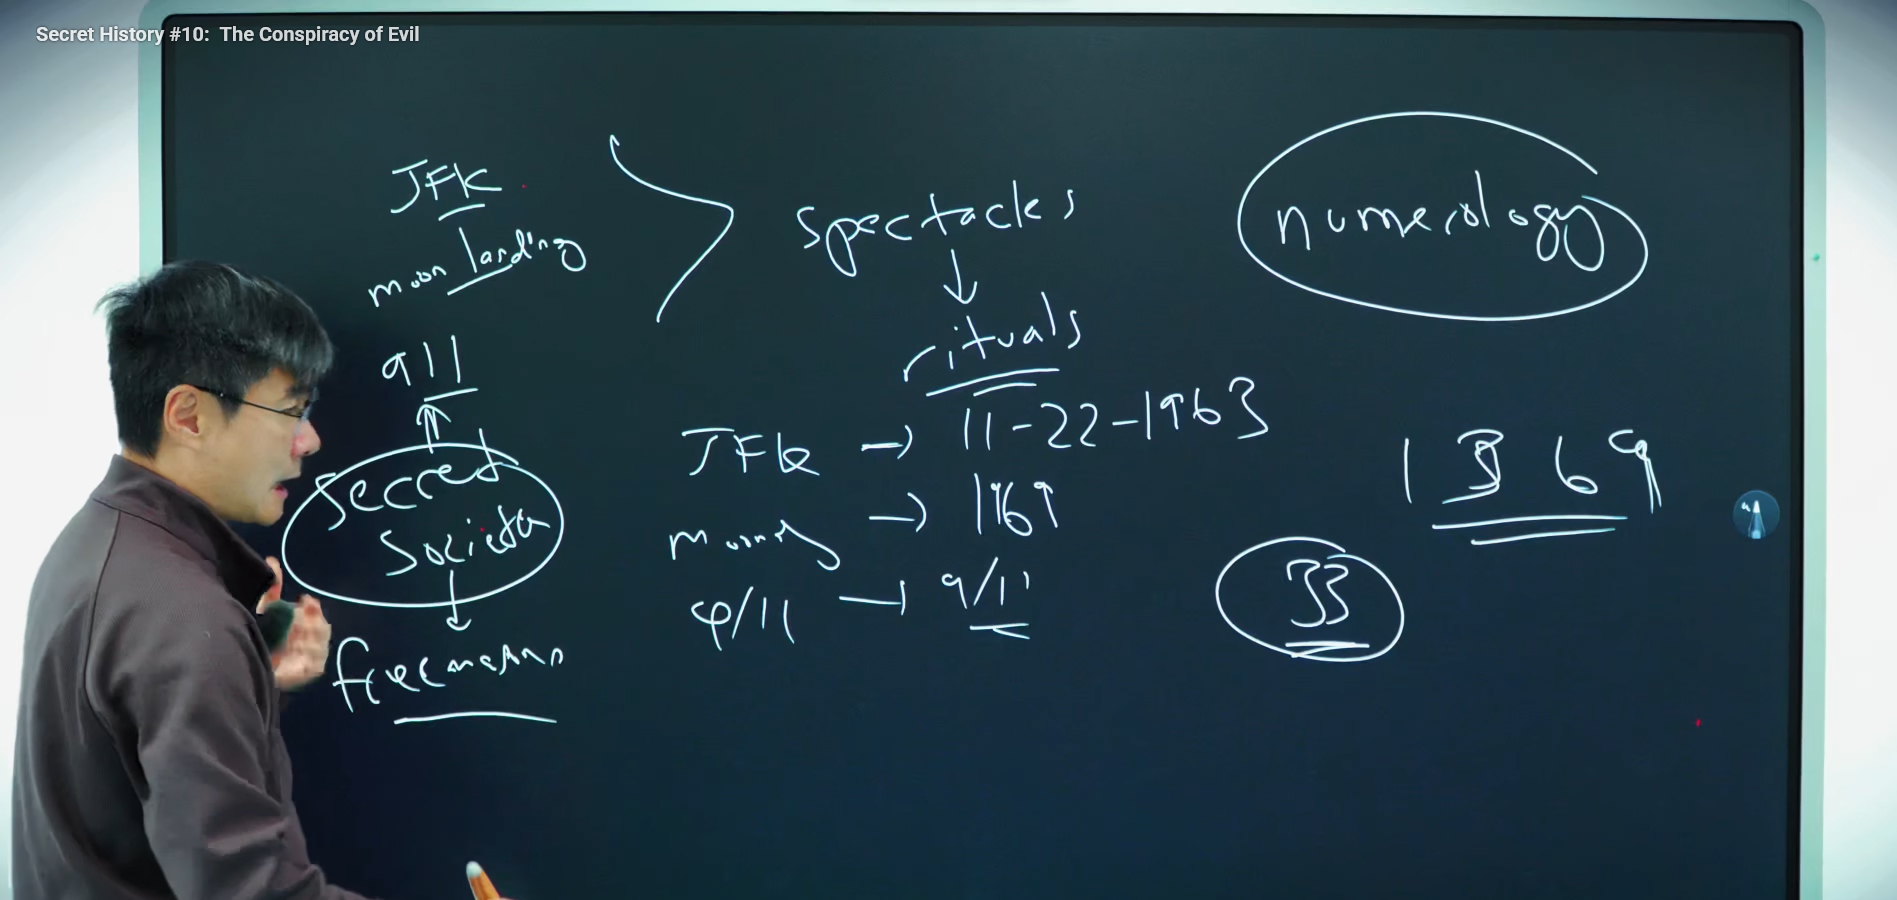 Secret History #10:  The Conspiracy of Evil
JFK
moon landing
911
Secret
Society
freemasons
spectacles
rituals
JFK → 11-22-1963
→ 1969
9/11 → 9/11
numerology
1 3 6 9
33